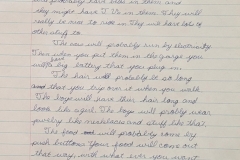 and probably have beds in them and
they might have T.V.'s in them. They will
really be nice to ride in. They will have lots of
other stuff to.
The cars will probably run by electricity.
Then when you put them in the garage you
will big battery that you plug in.
The hair will probably be so long
that you trip over it when you walk
The boys will have thir hair long and
look like a girl. The boys will probly wear
jewelry like necklaces and stuff like that.
The food will probably come by
push buttons. Your food will come out
that way, with what ever you want